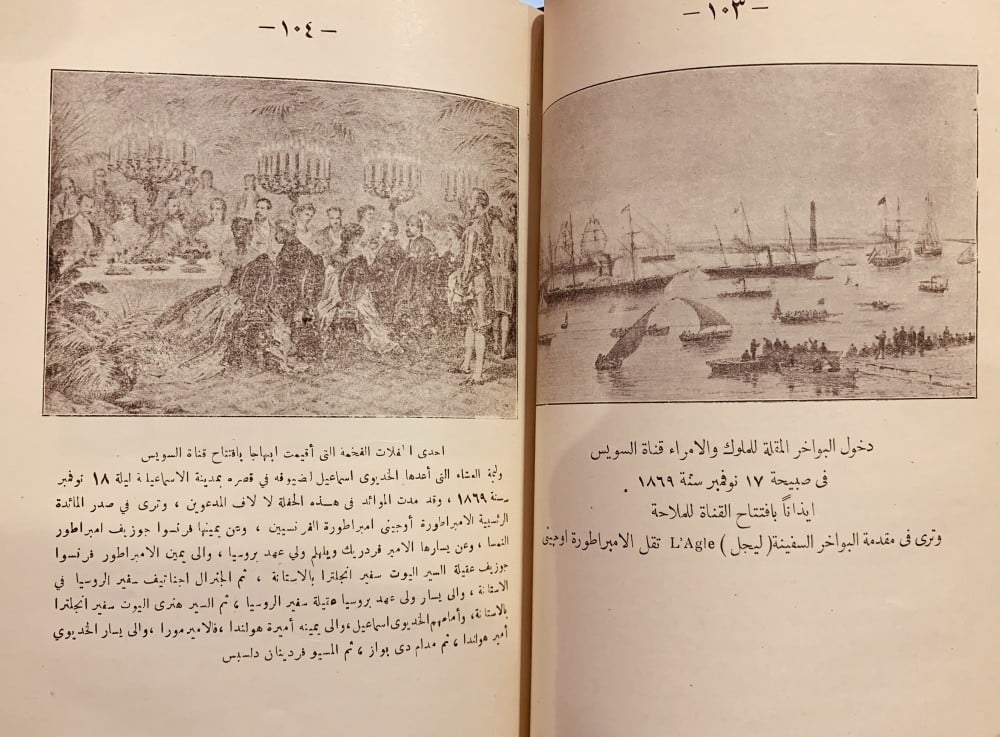 — ١٠٣ —
دخول البواخر المقلة للملوك والامراء قناة السويس
فى صبيحة ١٧ نوفمبر سنة ١٨٦٩
ايذاناً بافتتاح القناة للملاحة
وترى فى مقدمة البواخر السفينة ( ليجل ) L'Agle تقل الامبراطورة اوجينى
— ١٠٤ —
احدى الحفلات الفخمة التى أقيمت ابهاجا بافتتاح قناة السويس
وليمة العشاء التى أعدها الخديوى اسماعيل لضيوفه فى قصره بمدينة الاسماعيلية ليلة ١٨ نوفمبر
سنة ١٨٦٩ ، وقد مدت الموائد فى هذه الحفلة لا لاف المدعوين ، وترى فى صدر المائدة
الرئيسية الامبراطورة أوجينى امبراطورة الفرنسيين ، وعن يمينها فرنسوا جوزيف امبراطور
النمسا ، وعن يسارها الامير فردريك ويلهم ولي عهد بروسيا ، والى يمين الامبراطور فرنسوا
جوزيف عقيلة السير اليوت سفير انجلترا بالاستانة ، ثم الجنرال اجناتيف سفير الروسيا في
الاستانة ، والى يسار ولى عهد بروسيا عقيلة سفير الروسيا ، ثم السير هنرى اليوت سفير انجلترا
بالاستانة، وأمامهم الخديوى اسماعيل، والى يمينه أميرة هولندا ، فالامير مورا ، والى يسار الخديوي
أمير هولندا ، ثم مدام دى بواز ، ثم المسيو فردينان دلسبس